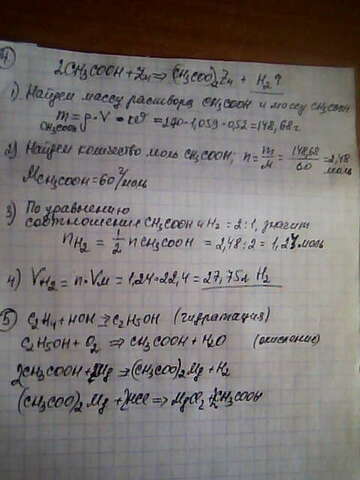 ④
2CH₃COOH + Zn ⇒ (CH₃COO)₂Zn + H₂↑
1) Найдем массу раствора CH₃COOH и массу CH₃COOH
m CH₃COOH = ρ·V·ω = 270·1,059·0,52 = 148,68 г.
2) Найдем количество моль CH₃COOH; n = m/M = 148,68/60 = 2,48 моль
M CH₃COOH = 60 г/моль
3) По уравнению
соотношение CH₃COOH и H₂ = 2:1, значит
n H₂ = 1/2 n CH₃COOH = 2,48:2 = 1,24 моль
4) V H₂ = n·Vm = 1,24·22,4 = 27,75 л H₂
⑤ C₂H₄ + HOH ⇒ C₂H₅OH (гидратация)
C₂H₅OH + O₂ ⇒ CH₃COOH + H₂O (окисление)
2CH₃COOH + Mg ⇒ (CH₃COO)₂Mg + H₂
(CH₃COO)₂Mg + 2HCl ⇒ MgCl₂ + 2CH₃COOH